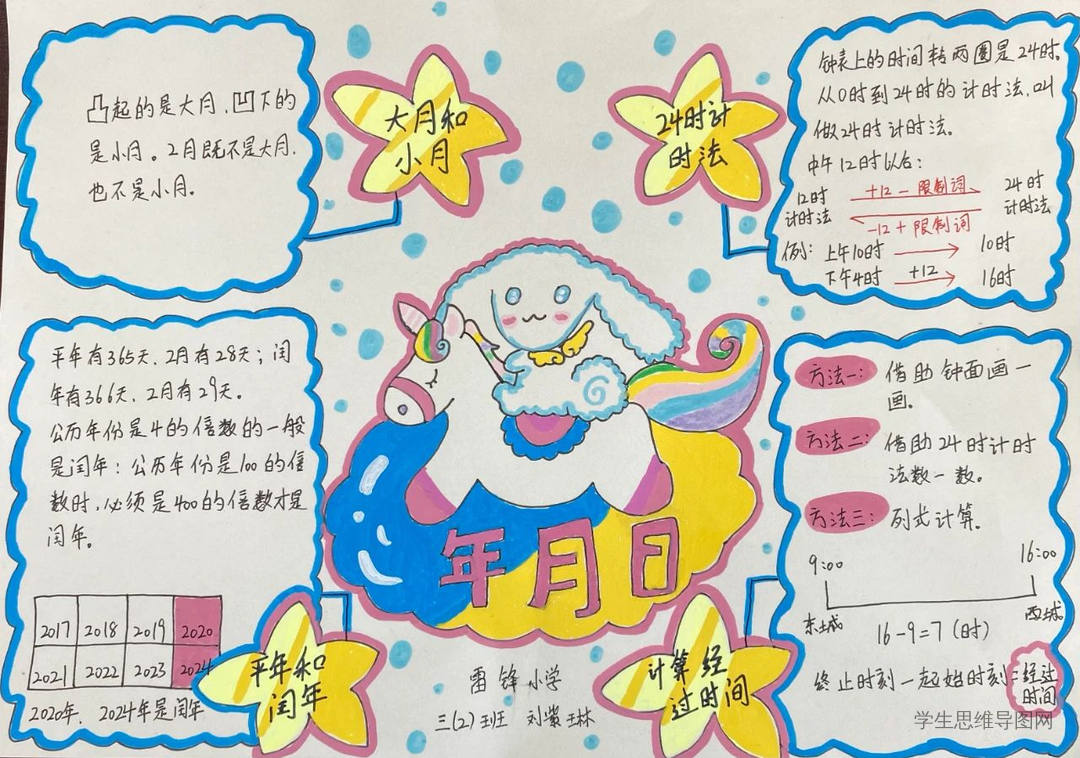 大月和
小月
凸起的是大月,凹下的
是小月。2月既不是大月,
也不是小月。
24时计
时法
钟表上的时间转两圈是24时。
从0时到24时的计时法,叫
做24时计时法。
中午12时以后:
12时
计时法
+12 - 限制词
-12 + 限制词
24时
计时法
例: 上午10时
10时
下午4时
+12
16时
平年有365天,2月有28天;闰
年有366天,2月有29天。
公历年份是4的倍数的一般
是闰年;公历年份是100的倍
数时,必须是400的倍数才是
闰年。
2017 2018 2019 2020
2021 2022 2023 2024
2020年、2024年是闰年
平年和
闰年
年月日
雷锋小学
三(2)班 刘紫琳
计算经
过时间
方法一: 借助钟面画一
画。
方法二: 借助24时计时
法数一数。
方法三: 列式计算。
9:00
16:00
东城
西城
16-9=7(时)
终止时刻-起始时刻=经过
时间
学生思维导图网